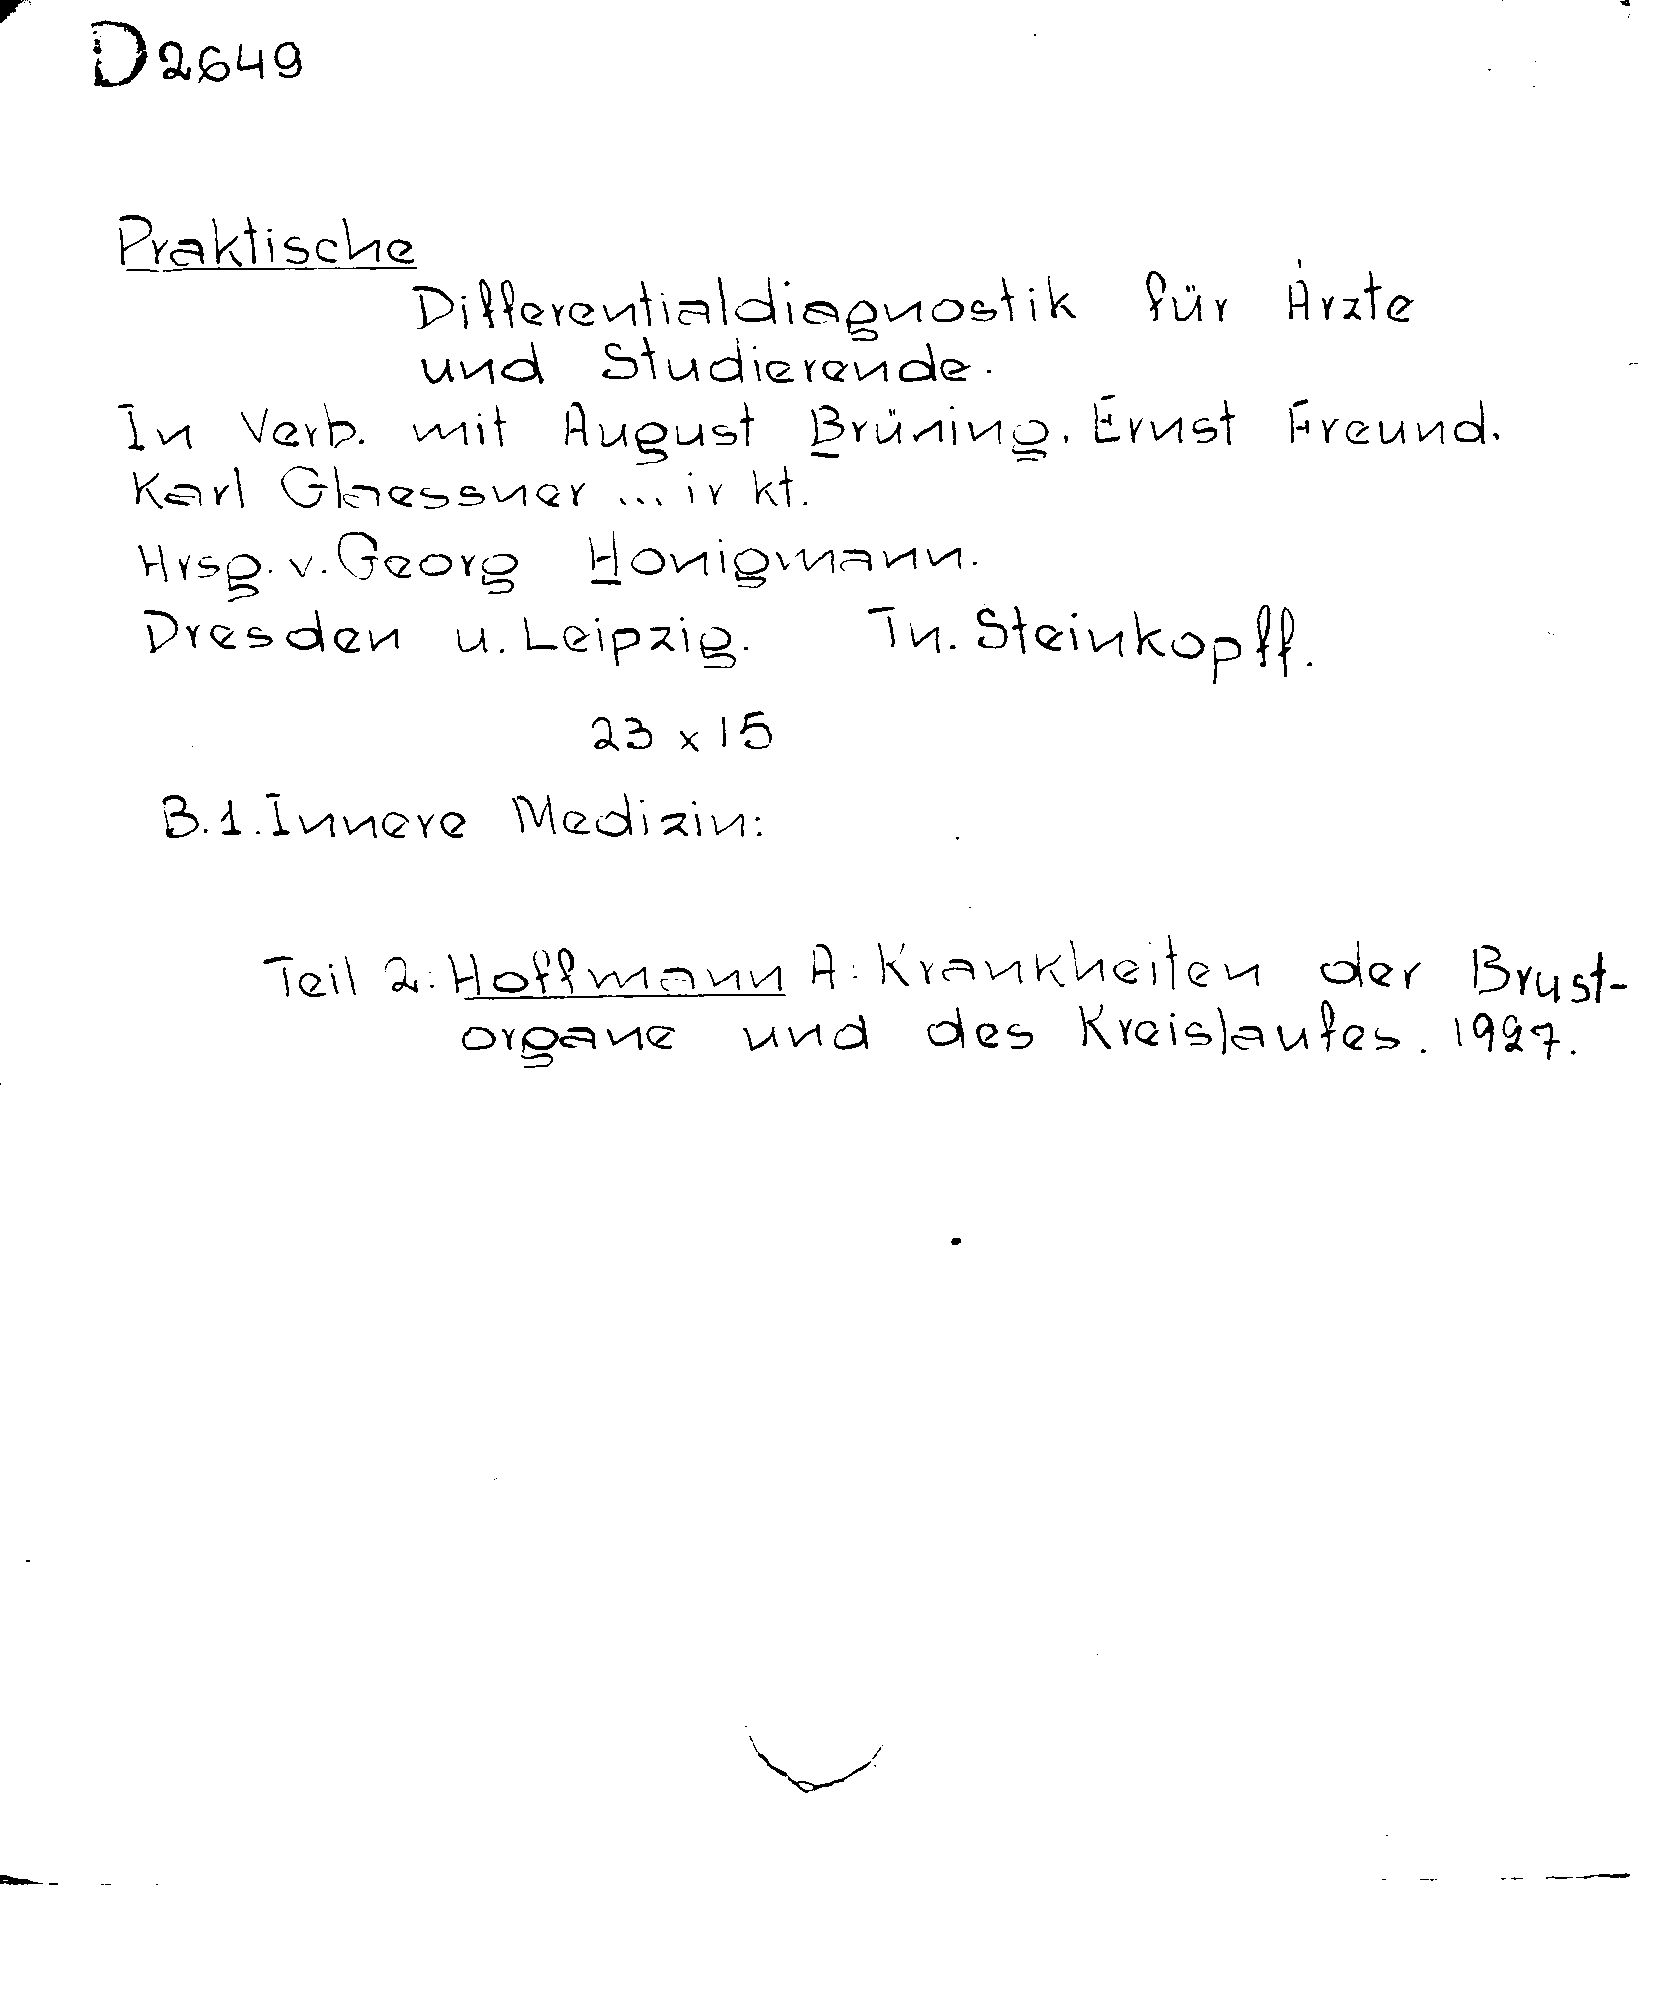 D2649
Praktische
Differentialdiagnostik für Ärzte
und Studierende.
In Verb. mit August Brüning, Ernst Freund,
Karl Glaessner ... ir kt.
Hrsg. v. Georg Honigmann.
Dresden u. Leipzig. Th. Steinkopff.
23 x 15
B.1. Innere Medizin:
Teil 2: Hoffmann A: Krankheiten der Brust-
organe und des Kreislaufes. 1927.